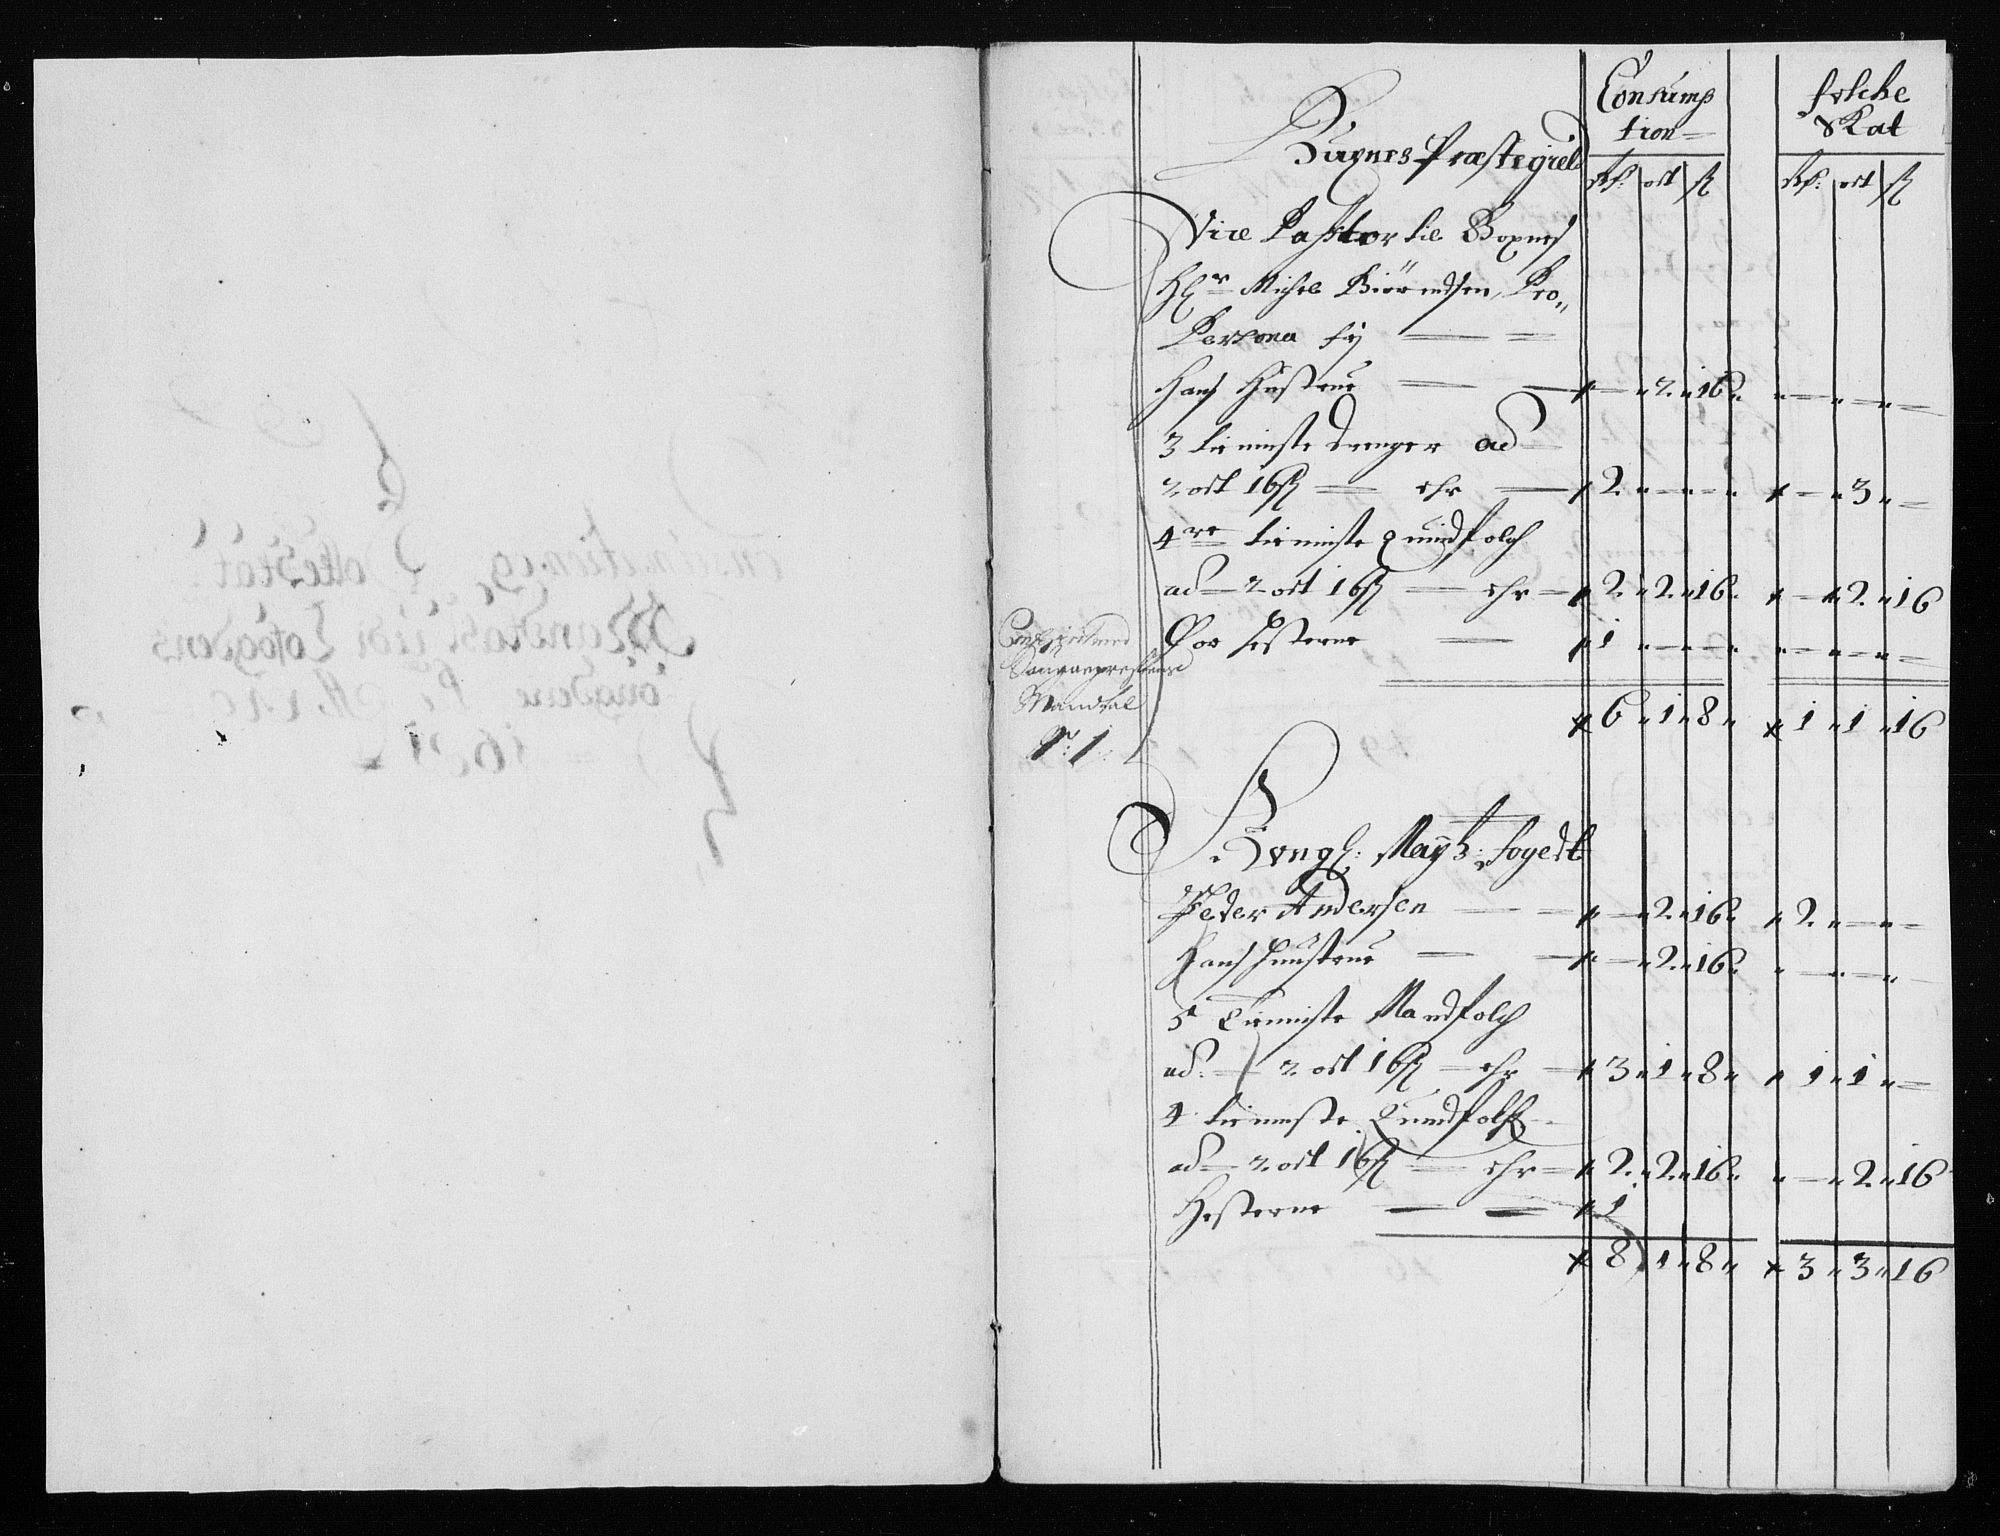 Consump
tion
folche
Skat
Buxnes Præstegield
Rd: ort ß
Rd: ort ß
Vice Pastor til Boxnes
Hr Michel Biörndsen, Pro
Persona frj
Hans Hustrue — 2 16
3 tienniste drenger ad
2 ort 16 ß ehr 2 — — 3
4re tienniste quindfolch
ad 2 ort 16 ß ehr 2 2 16 — 2 16
For Hesterne 1
6 1 8 1 1 16
Mandtal
No: 1
Kongl: Mayts: fogedt
Peder Andersen — 2 16 2
Hans Huustrue — 2 16
5 Tienniste Mandfolch
ad 2 ort 16 ß ehr 3 1 8 1 1
4 tienneste Quindfolch
ad 2 ort 16 ß ehr 2 2 16 — 2 16
Hesterne 1
8 1 8 3 3 16